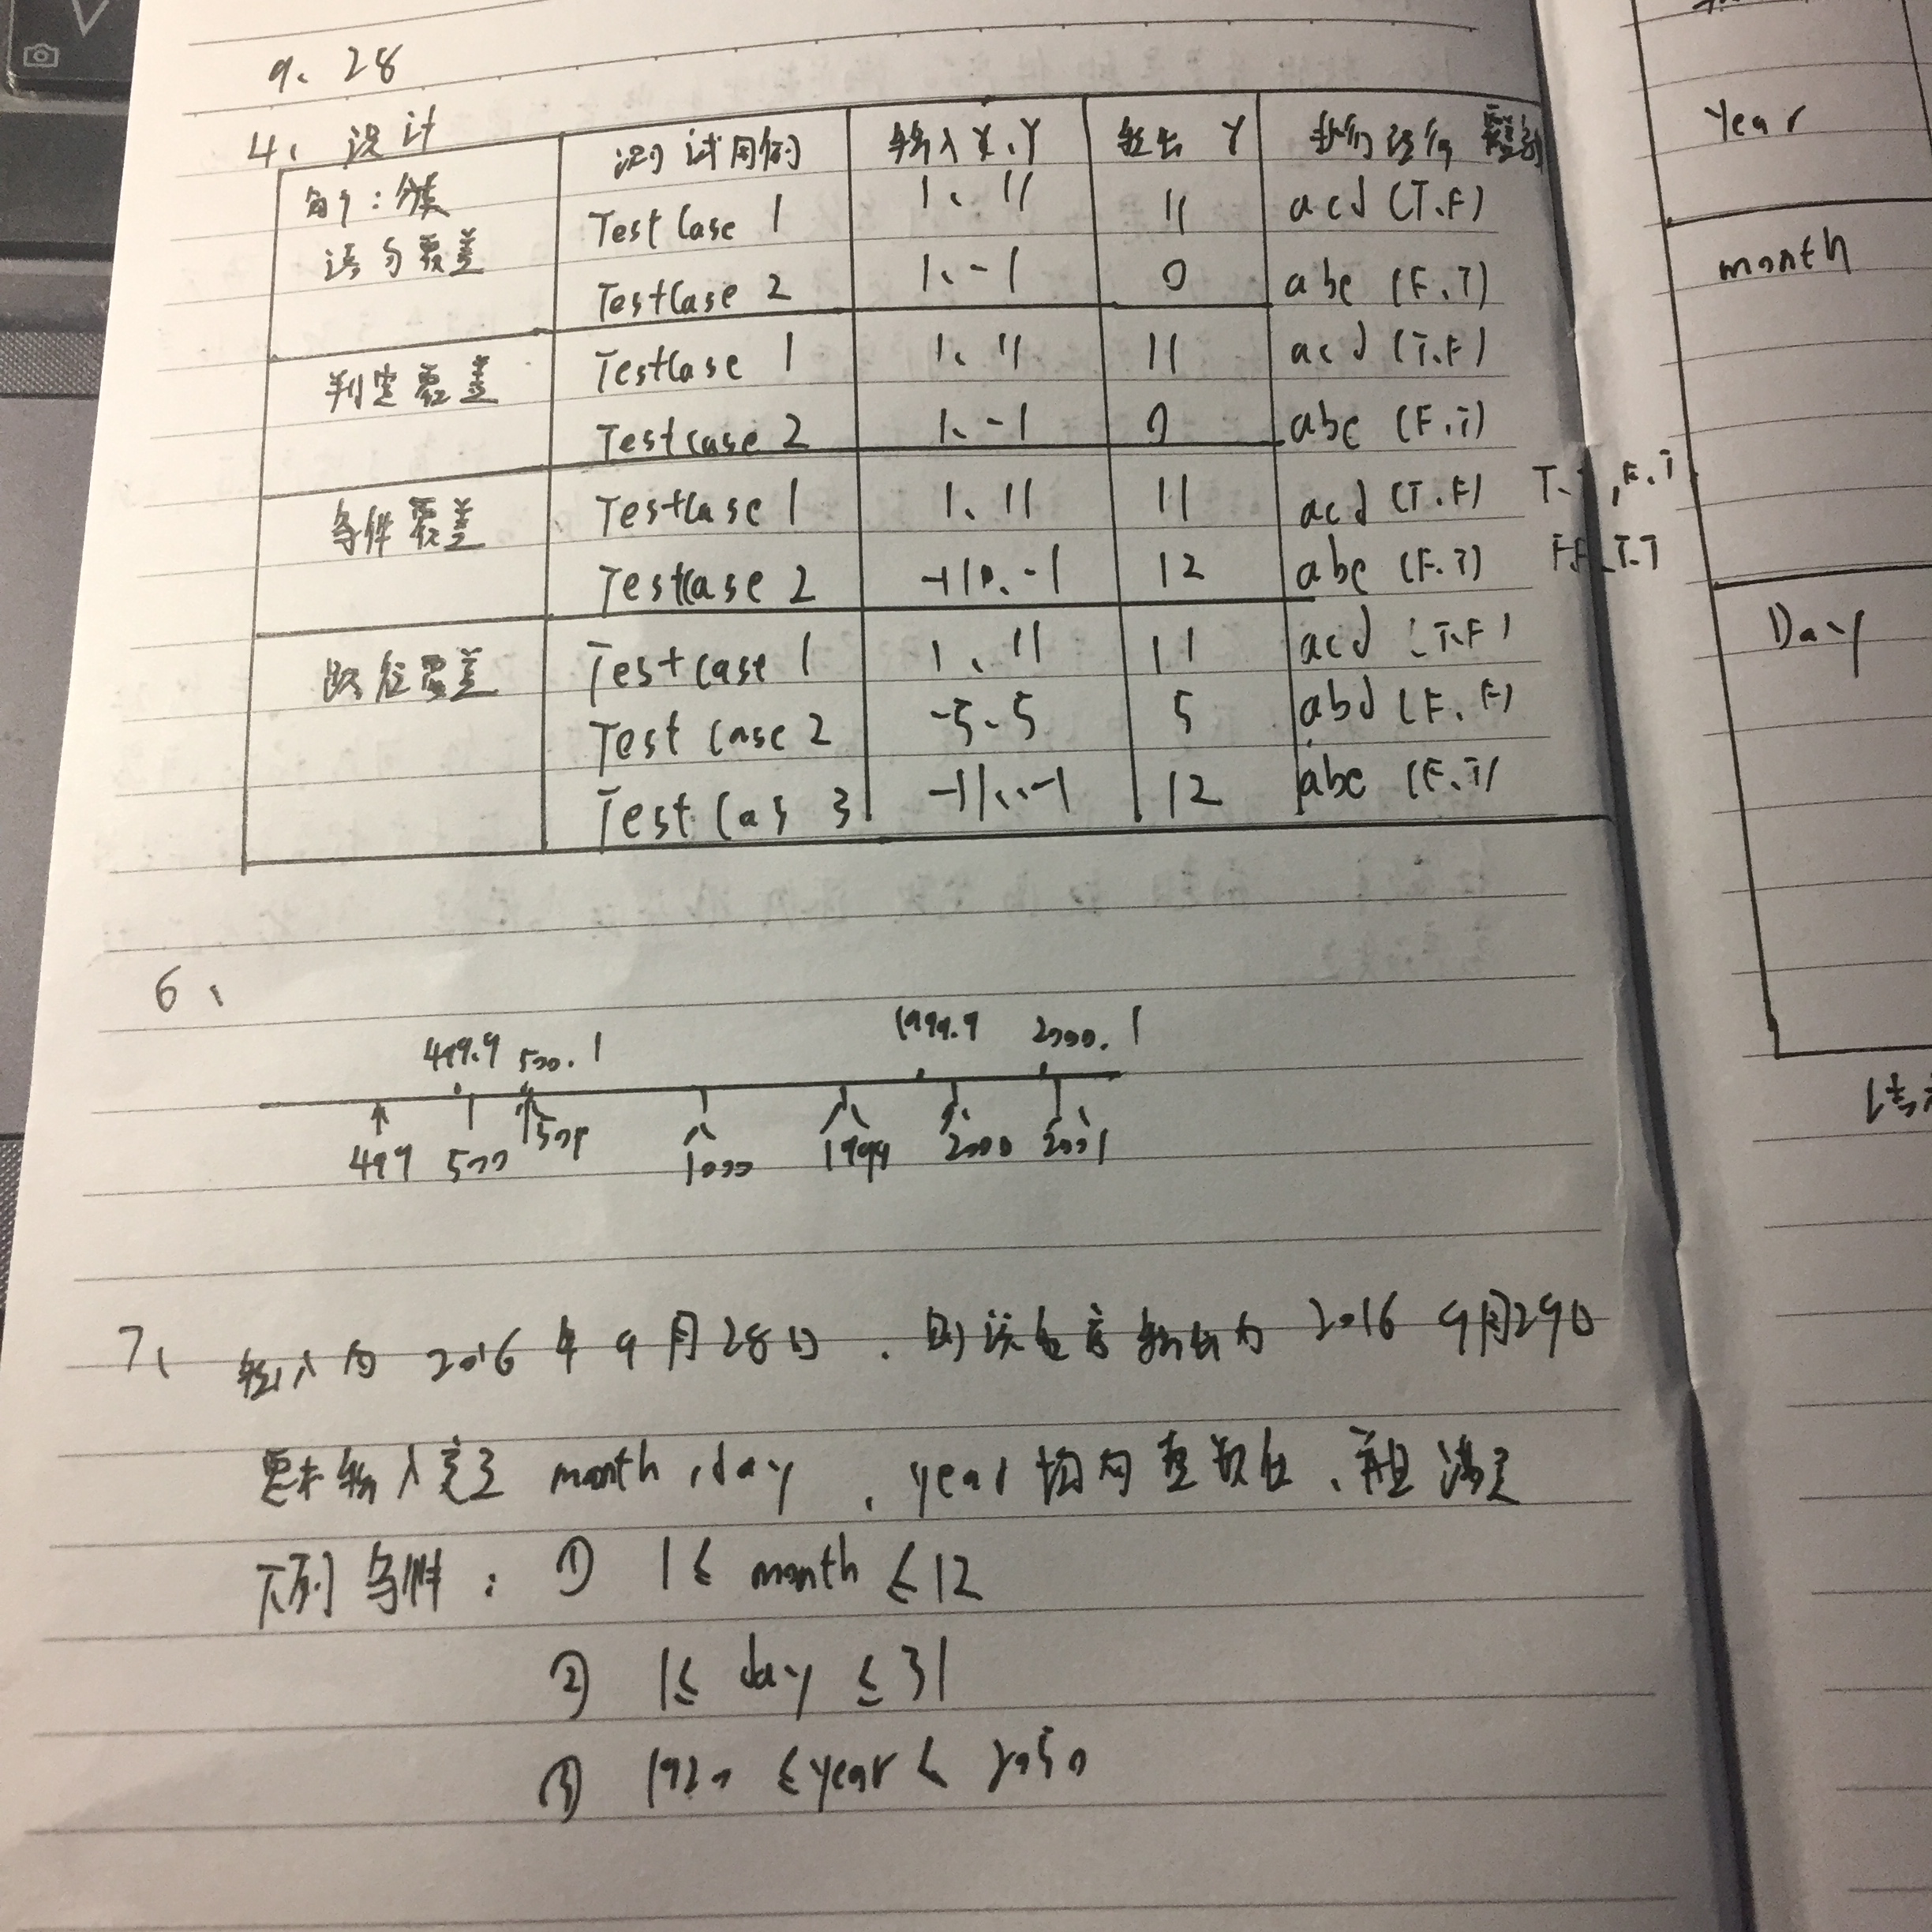 9、28
4、设计
测试用例 输入X、Y 输出Y 执行路径 覆盖
语句覆盖 Test Case 1 1、11 11 acd (T.F)
TestCase 2 1、-1 0 abe (F.T)
判定覆盖 TestCase 1 1、11 11 acd (T.F)
Testcase 2 1、-1 0 abe (F.T)
条件覆盖 TestCase 1 1、11 11 acd (T.F)
TestCase 2 -11、-1 12 abe (F.T)
路径覆盖 Testcase 1 1、11 11 acd (T.F)
Test Case 2 -5、5 5 abd (F.F)
Test Cas 3 -11、-1 12 abe (F.T)
6、
499.9 500.1 1999.9 2000.1
499 500 501 1000 1999 2000 2001
7、输入为 2016年9月28日,则该程序输出为 2016 9月29日
要求输入变量 month,day,year 均为整数值,并且满足
下列条件:① 1≤ month ≤12
② 1≤ day ≤31
③ 1920 ≤year≤ 2050
Year
month
Day